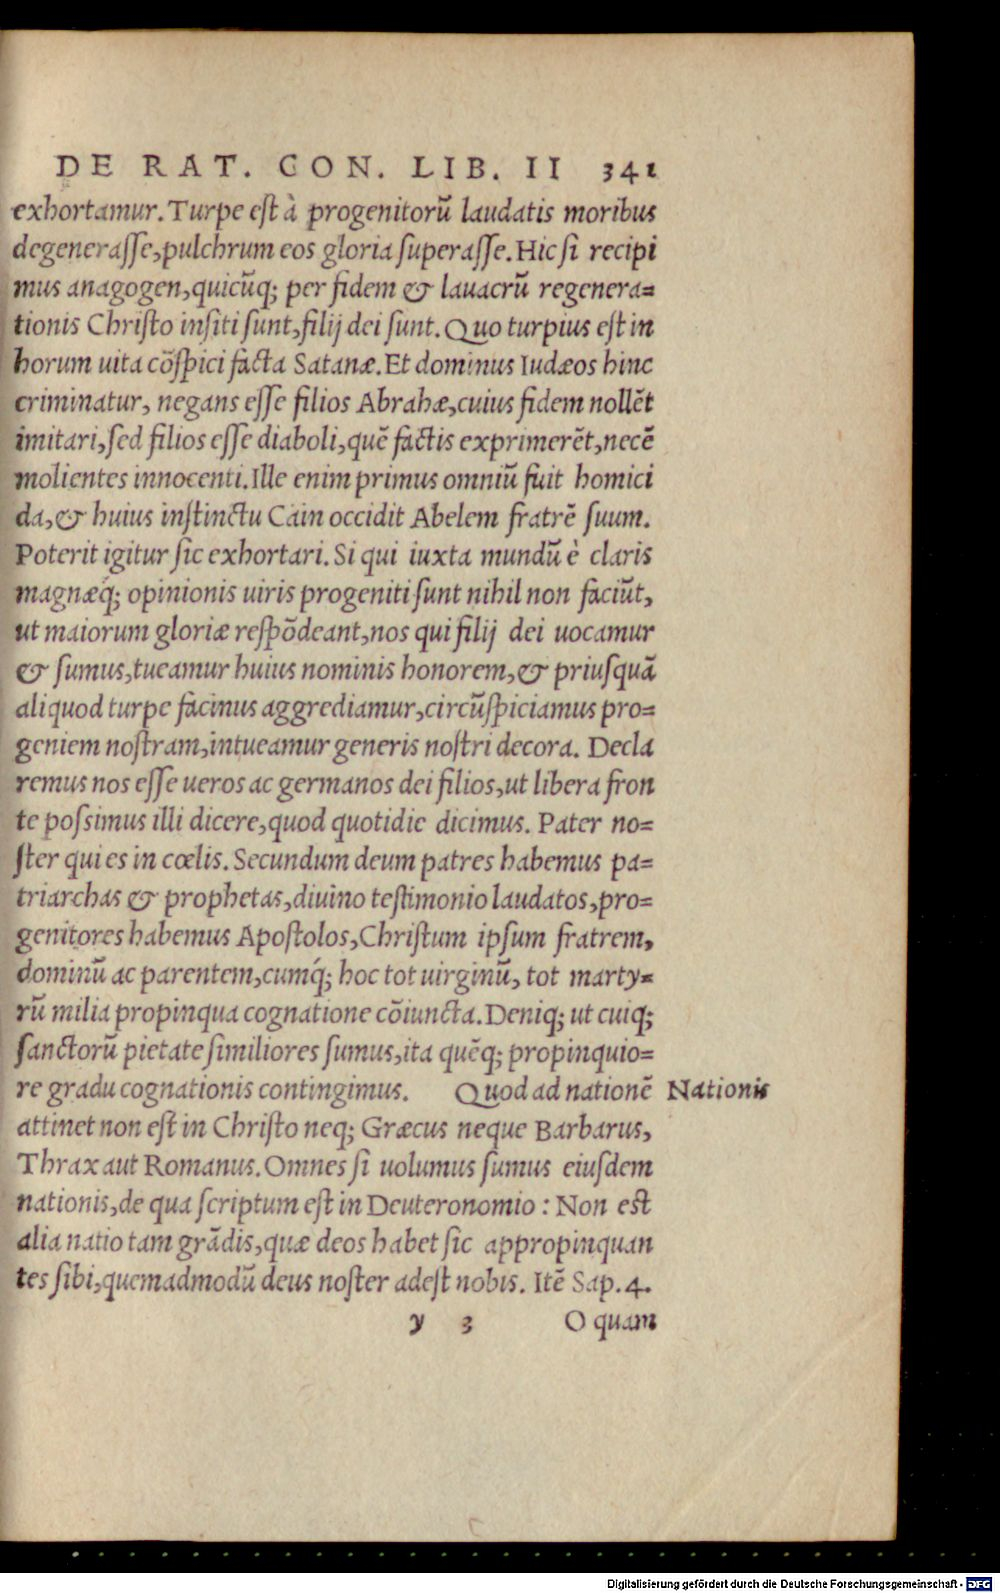 DE RAT. CON. LIB. II 341
exhortamur. Turpe eſt à progenitorũ laudatis moribus
degeneraſſe, pulchrum eos gloria ſuperaſſe. Hic ſi recipi
mus anagogen, quicũq; per fidem & lauacrũ regenera=
tionis Chriſto inſiti ſunt, filij dei ſunt. Quo turpius eſt in
horum uita cõſpici facta Satanæ. Et dominus Iudæos hinc
criminatur, negans eſſe filios Abrahæ, cuius fidem nollẽt
imitari, ſed filios eſſe diaboli, quẽ factis exprimerẽt, necẽ
molientes innocenti. Ille enim primus omniũ fuit homici
da, & huius inſtinctu Cain occidit Abelem fratrẽ ſuum.
Poterit igitur ſic exhortari. Si qui iuxta mundũ è claris
magnæq́; opinionis uiris progeniti ſunt nihil non faciũt,
ut maiorum gloriæ reſpõdeant, nos qui filij dei uocamur
& ſumus, tueamur huius nominis honorem, & priuſquã
aliquod turpe facinus aggrediamur, circũſpiciamus pro=
geniem noſtram, intueamur generis noſtri decora. Decla
remus nos eſſe ueros ac germanos dei filios, ut libera fron
te poſsimus illi dicere, quod quotidie dicimus. Pater no=
ſter qui es in cœlis. Secundum deum patres habemus pa=
triarchas & prophetas, diuino teſtimonio laudatos, pro=
genitores habemus Apoſtolos, Chriſtum ipſum fratrem,
dominũ ac parentem, cumq́; hoc tot uirginũ, tot marty=
rũ milia propinqua cognatione cõiuncta. Deniq; ut cuiq;
ſanctorũ pietate ſimiliores ſumus, ita quẽq; propinquio=
re gradu cognationis contingimus. Quod ad nationẽ Nationis
attinet non eſt in Chriſto neq; Græcus neque Barbarus,
Thrax aut Romanus. Omnes ſi uolumus ſumus eiuſdem
nationis, de qua ſcriptum eſt in Deuteronomio : Non eſt
alia natio tam grãdis, quæ deos habet ſic appropinquan
tes ſibi, quemadmodũ deus noſter adeſt nobis. Itẽ Sap. 4.
y 3 O quam
Digitalisierung gefördert durch die Deutsche Forschungsgemeinschaft - DFG